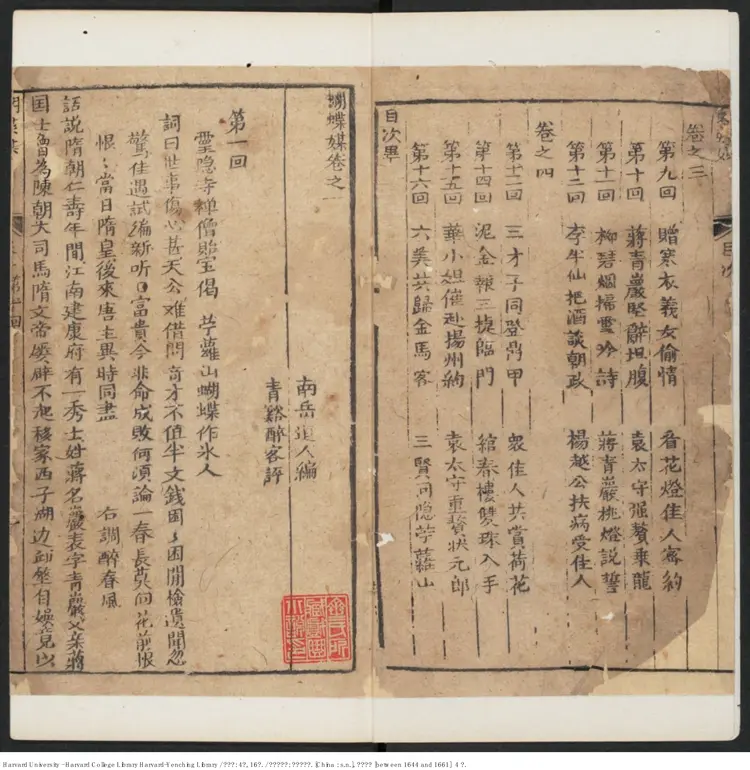 卷之三
第九回　贈寒衣義女偷情　看花燈佳人寄約
第十回　蔣青巖堅辭坦腹　袁太守强贅乘龍
第十一回　柳碧烟掃雪吟詩　蔣青巖挑燈說誓
第十二回　李半仙把酒談朝政　楊越公扶病受佳人
卷之四
第十三回　三才子同登鼎甲　衆佳人共賞荷花
第十四回　泥金報三捷臨門　綰春樓雙珠入手
第十五回　華小姐催赴揚州約　袁太守重贅狀元郎
第十六回　六美共歸金馬客　三賢同隐苧蘿山
目次畢
蝴蝶媒卷之一
南岳道人編
青谿醉客評
第一回
靈隐寺禪僧貽宝偈　苧蘿山蝴蝶作氷人
詞曰世事傷心甚天公难借問奇才不值半文錢困〻困閒檢遺聞忽
驚佳遇試编新听　富貴今非命成敗何須論一春長莫向花前恨
恨〻當日隋皇後來唐主異時同盡　右調醉春風
話說隋朝仁壽年間江南建康府有一秀士姓蔣名巖表字青巖父亲蔣
国士曾為陳朝大司馬隋文帝屡辟不起移家西子湖边卸
Harvard University - Harvard College Library Harvard-Yenching Library / ???: 4?, 16?. / ?????; ?????. [China : s.n.], ???? [between 1644 and 1661] 4 ?.